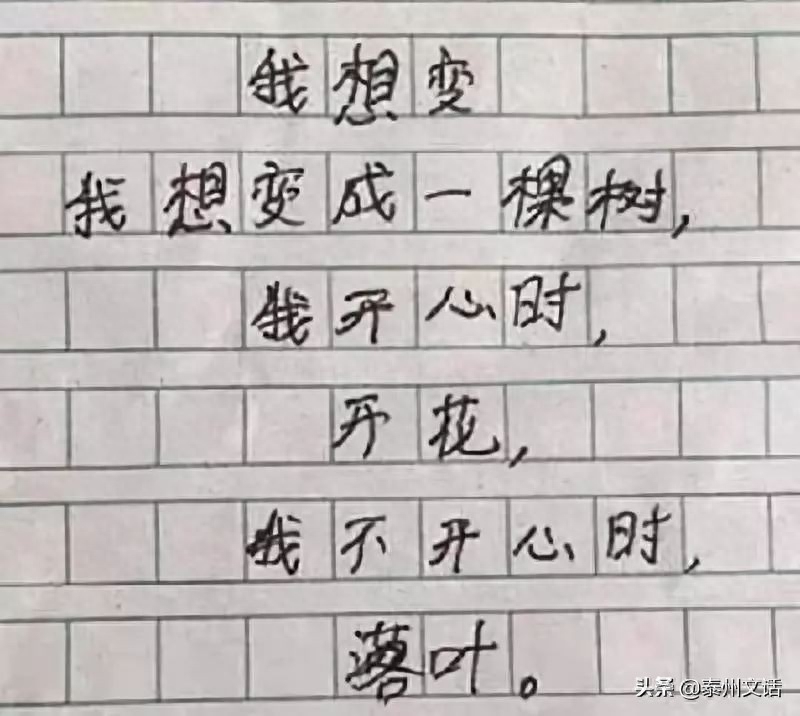 我想变
我想变成一棵树，
我开心时，
开花，
我不开心时，
落叶。
头条 @泰州文话